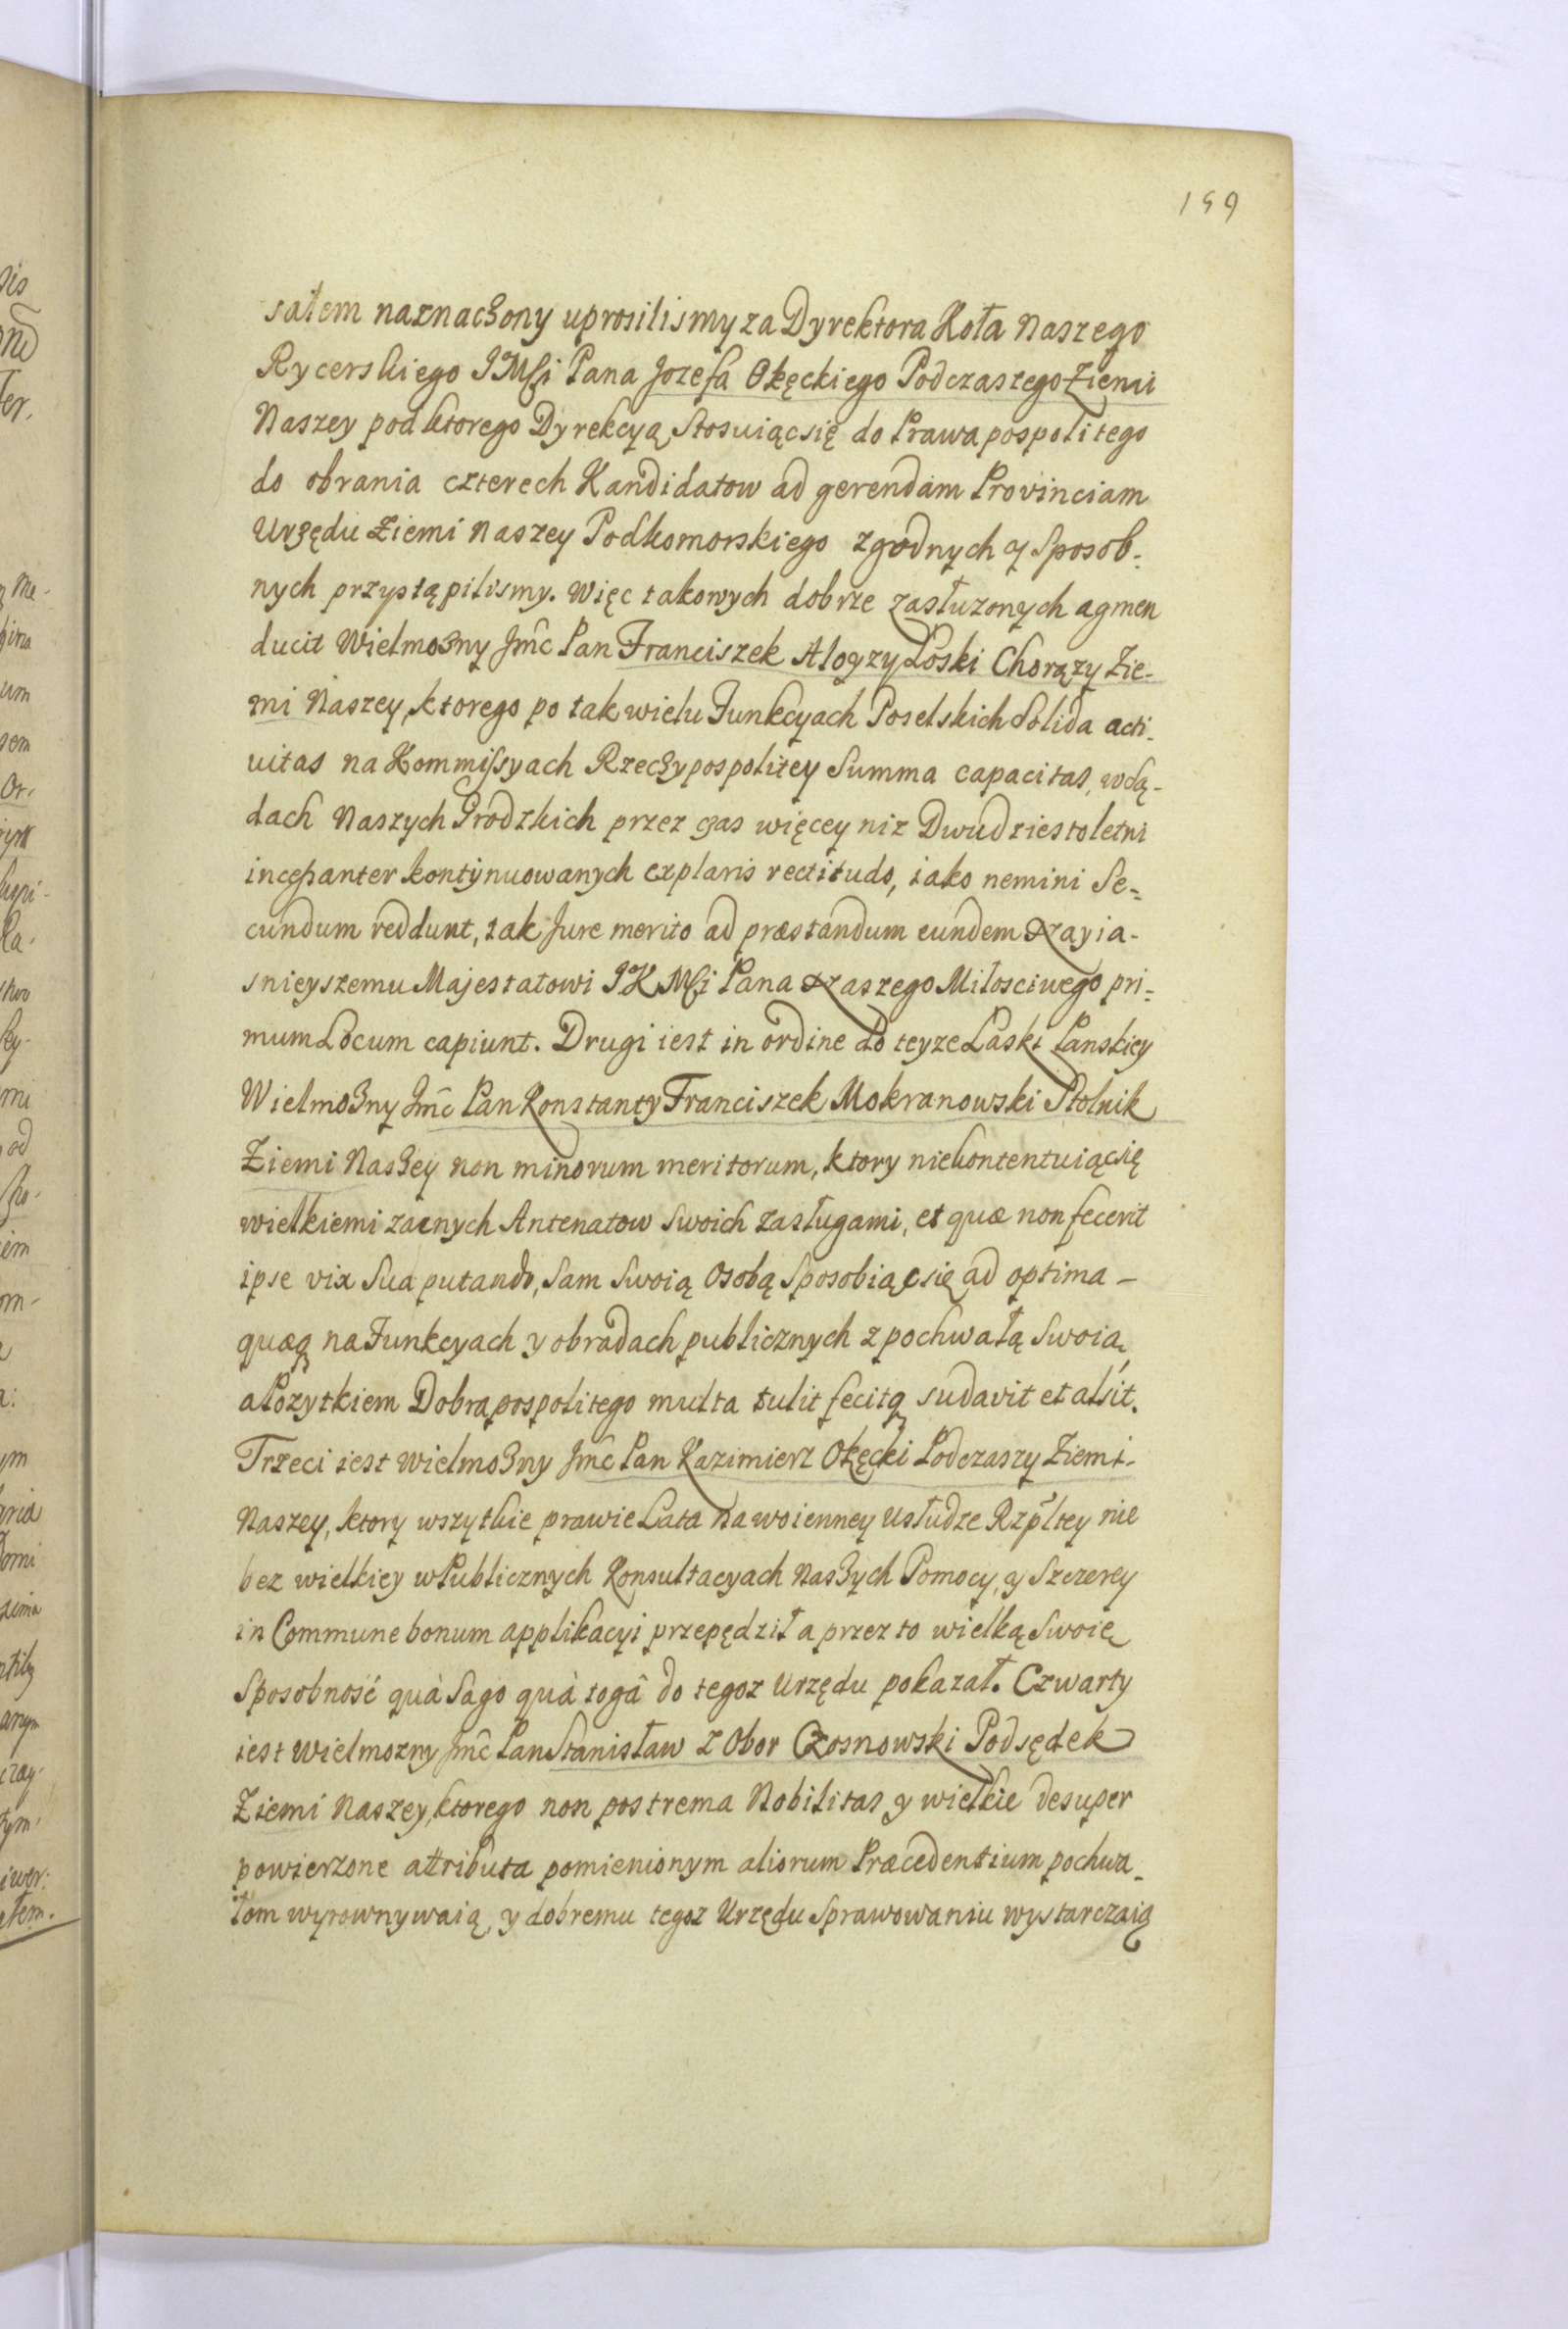 159
sałem naznaczony uprosilismy za Dyrektora Koła Naszego
Rycerskiego JMSci Pana Jozefa Okęckiego Podczaszego Ziemi
Naszey pod ktorego Dyrekcyą Stosuiąc się do Prawa pospolitego
do obrania czterech Kandidatow ad gerendam Provinciam
Urzędu Ziemi Naszey Podkomorskiego zgodnych y Sposob-
nych przystąpilismy. Więc takowych dobrze zasłuzonych agmen
ducit Wielmozny Jmc Pan Franciszek Aloyzy Łoski Chorązy Zie-
mi Naszey, ktorego po tak wielu Funkcyach Poselskich Solida acti-
uitas na Kommissyach Rzeczypospolitey Summa capacitas, w Są-
dach Naszych Grodzkich przez czas więcey niz Dwudziestoletni
incessanter kontynuowanych explaris rectitudo, iako nemini Se-
cundum reddunt, tak Jure merito ad præstandum eundem Nayia-
snieyszemu Majestatowi JKMSci Pana Naszego Miłosciwego pri-
mum Locum capiunt. Drugi iest in ordine do teyze Łaski Panskiey
Wielmozny Jmc Pan Konstanty Franciszek Mokranowski Stolnik
Ziemi Naszey non minorum meritorum, ktory niekontentuiąc się
wielkiemi zacnych Antenatow Swoich zasługami, et quæ non fecerit
ipse vix Sua putando, Sam Swoią Osobą Sposobiąc się ad optima-
quæq na Funkcyach y obradach publicznych z pochwałą Swoią
a Pozytkiem Dobra pospolitego multa tulit fecitq sudavit et alsit.
Trzeci iest Wielmozny Jmc Pan Kazimierz Okęcki Podczaszy Ziemi-
Naszey, ktory wszytkie prawie Lata na woienney Usłudze Rzpltey nie
bez wielkiey w Publicznych Konsultacyach Naszych Pomocy, y Szczerey
in Commune bonum applikacyi przepędził a przez to wielką Swoię
Sposobność quà Sago quà togâ do tegoz Urzędu pokazał. Czwarty
iest Wielmozny Jmc Pan Stanisław z Obor Czosnowski Podsędek
Ziemi Naszey, ktorego non postrema Nobilitas y wielkie desuper
powierzone attributa pomienionym aliorum Præcedentium pochwa-
łom wyrownywaią, y dobremu tegoz Urzędu Sprawowaniu wystarczaią